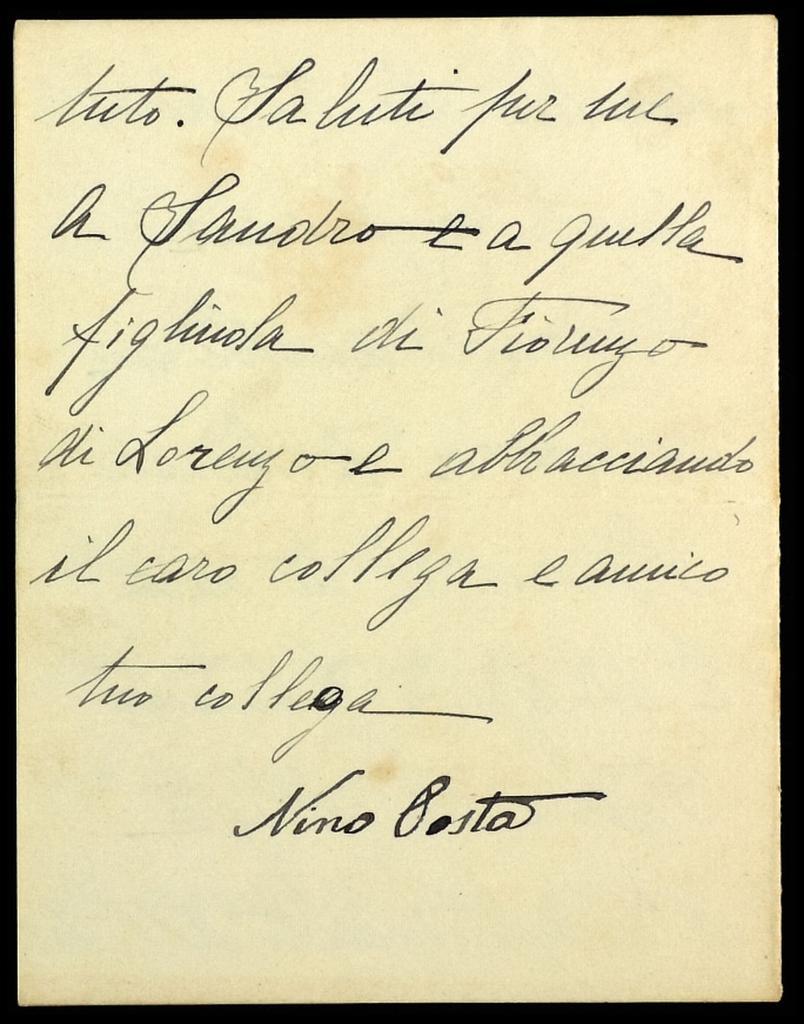 tuto. Saluti per me
a Sandro e a quella
figliuola di Fiorenzo
di Lorenzo e abbracciando
il caro collega e amico
tuo collega
Nino Costa